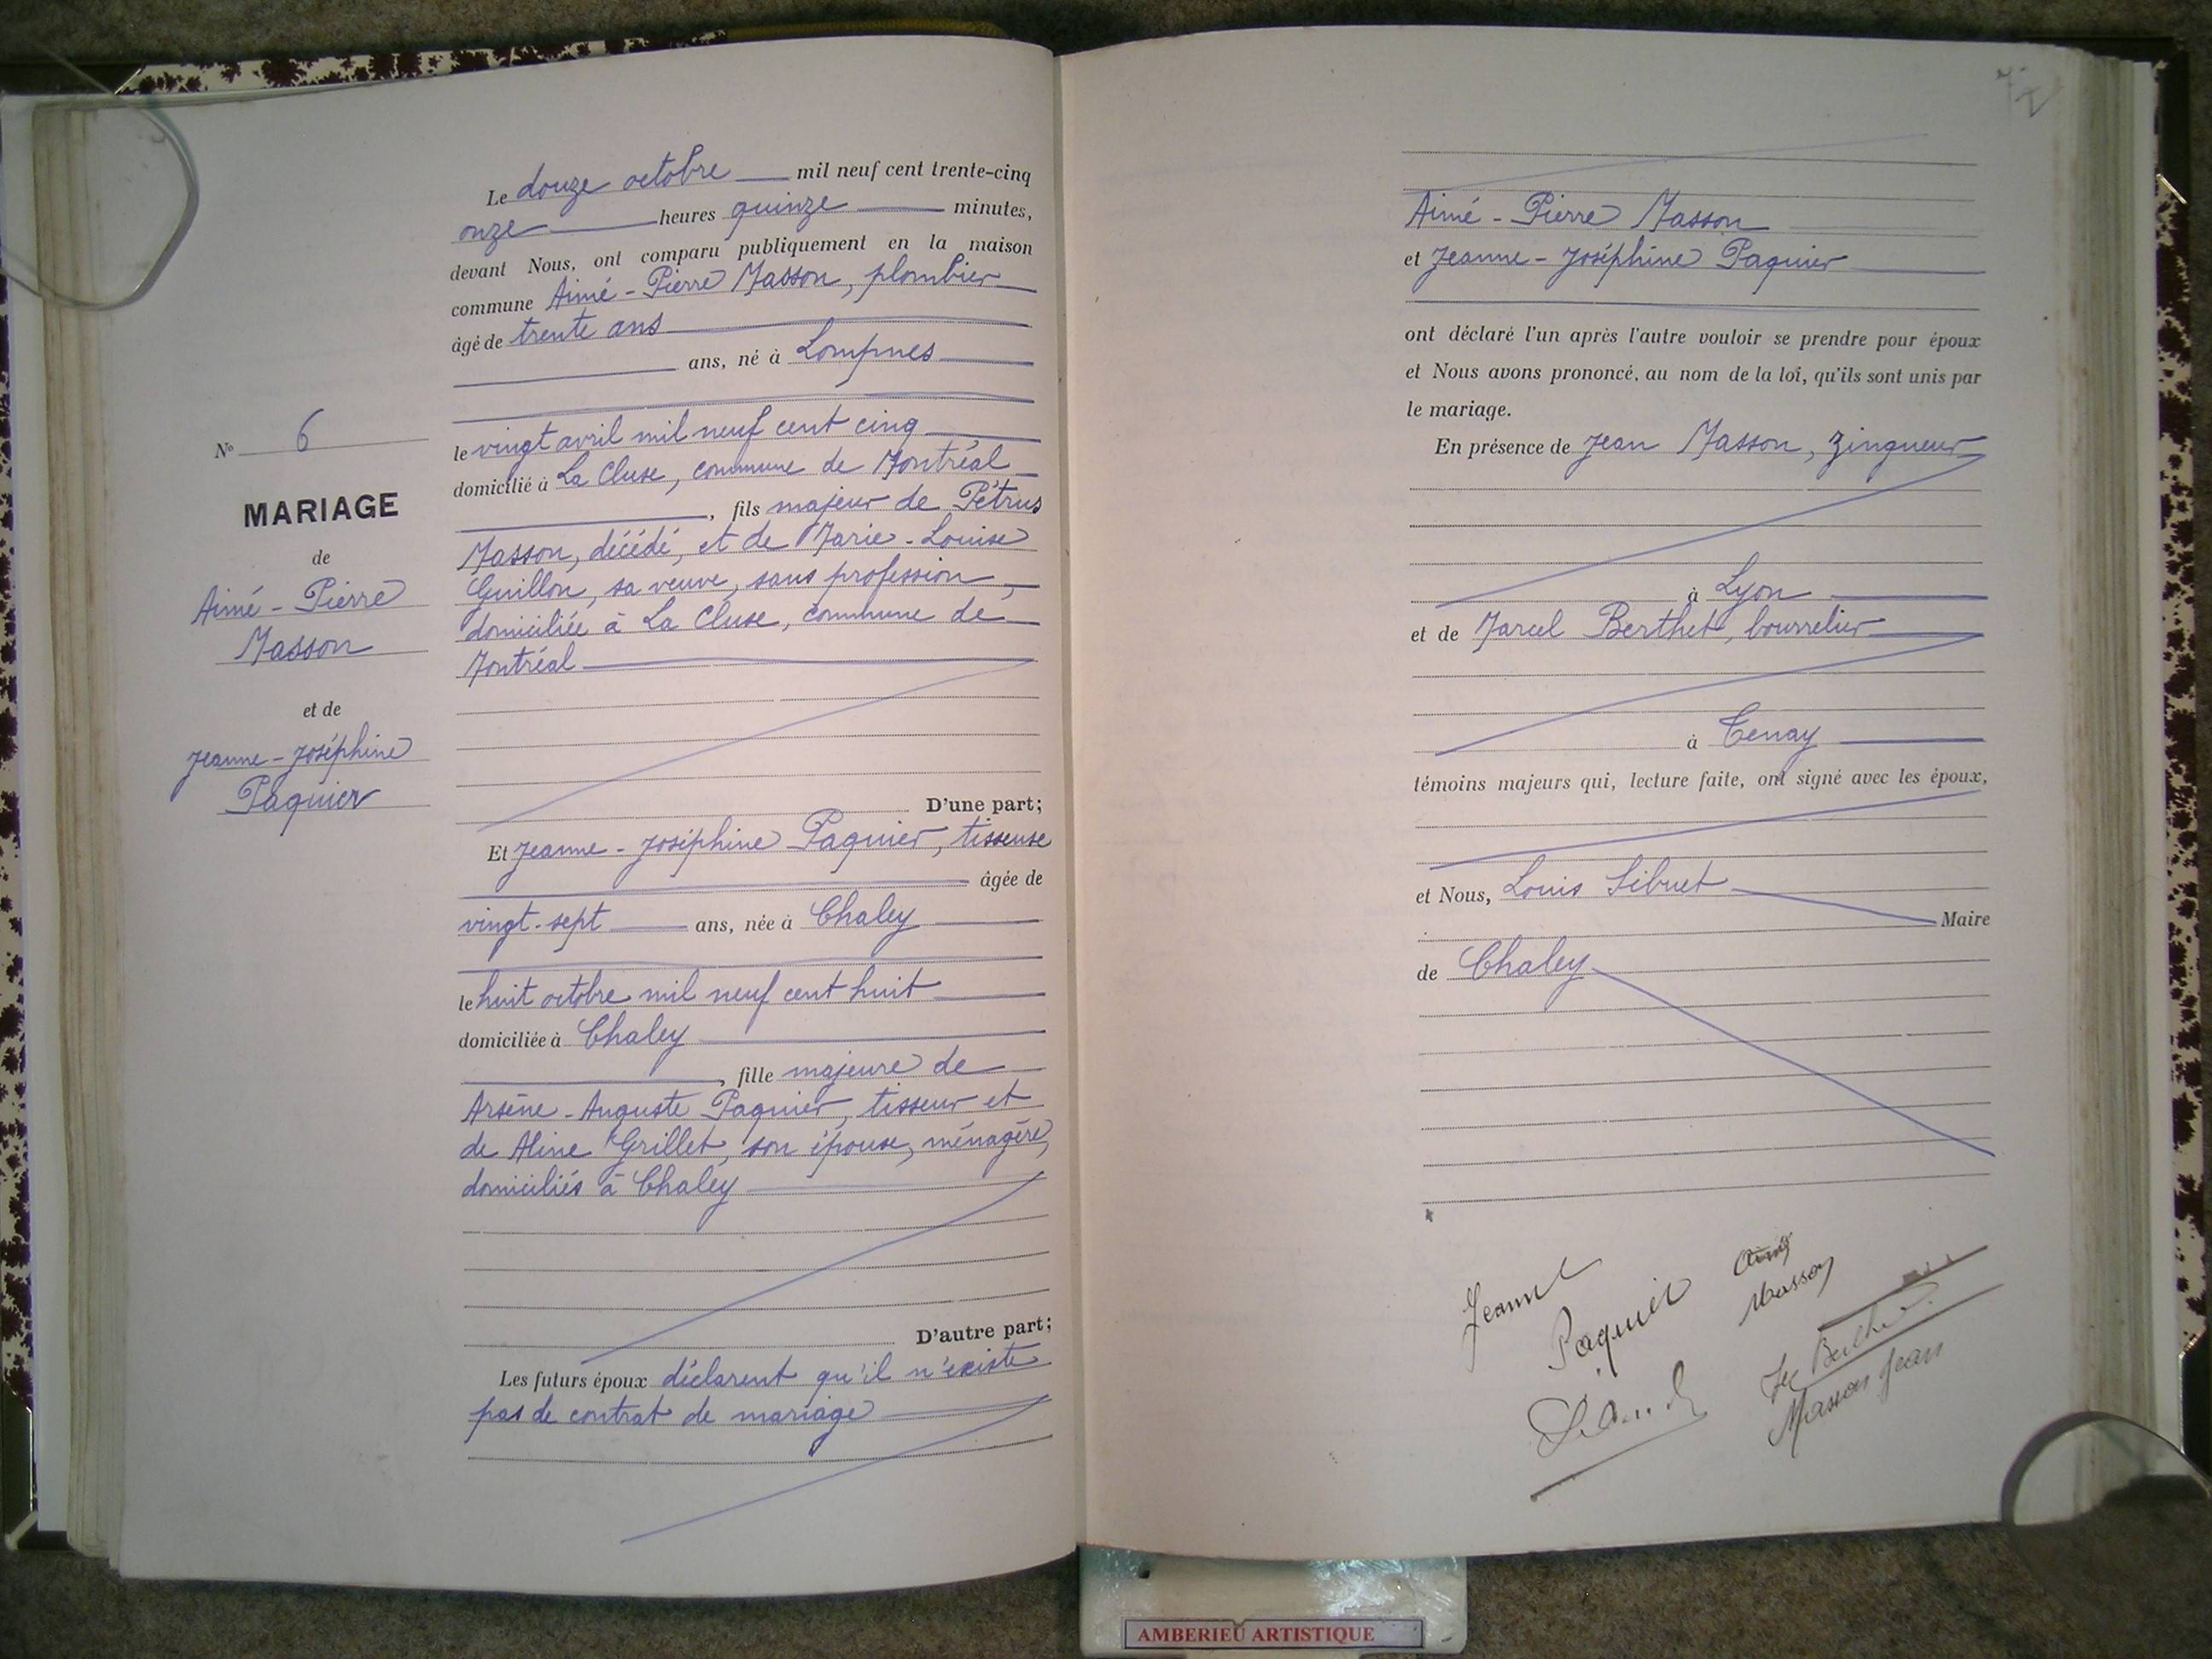 Le douze octobre mil neuf cent trente-cinq
onze heures quinze minutes,
devant Nous, ont comparu publiquement en la maison
commune Aimé - Pierre Masson, plombier
âgé de trente ans
ans, né à Lompnes
le vingt avril mil neuf cent cinq
domicilié à La Cluse, commune de Montréal
, fils majeur de Pétrus
Masson, décédé, et de Marie - Louise
Guillon, sa veuve, sans profession,
domiciliée à La Cluse, commune de
Montréal
D'une part;
Et Jeanne - Joséphine Paquier, tisseuse
âgée de
vingt-sept ans, née à Chaley
le huit octobre mil neuf cent huit
domiciliée à Chaley
, fille majeure de
Arsène - Auguste Paquier, tisseur et
de Aline Grillet, son épouse, ménagère,
domiciliés à Chaley
D'autre part;
Les futurs époux déclarent qu'il n'existe
pas de contrat de mariage
N° 6
MARIAGE
de
Aimé - Pierre
Masson
et de
Jeanne - Joséphine
Paquier
Aimé - Pierre Masson
et Jeanne - Joséphine Paquier
ont déclaré l'un après l'autre vouloir se prendre pour époux
et Nous avons prononcé, au nom de la loi, qu'ils sont unis par
le mariage.
En présence de Jean Masson, zingueur
à Lyon
et de Marcel Berthet, bourrelier
à Tenay
témoins majeurs qui, lecture faite, ont signé avec les époux,
et Nous, Louis Sibuet
Maire
de Chaley
Jeanne
Paquier
Aimé
Masson
Masson Jean
AMBERIEU ARTISTIQUE